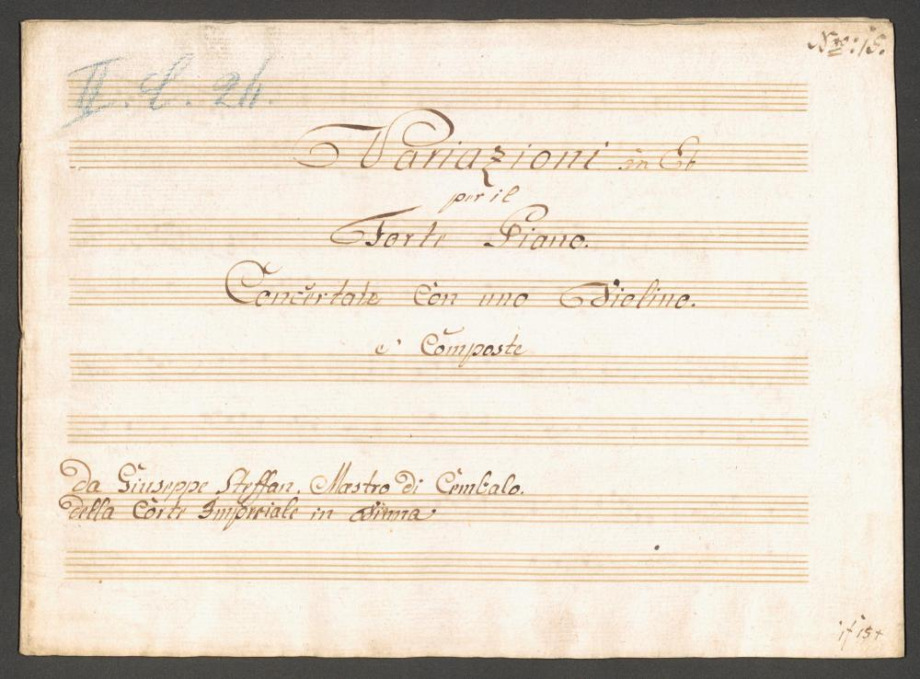 Nro: 15.
II. C. 26.
Variazioni in Eb
per il
Forte Piano.
Concertate Con uno Violino.
e' Composte
da Giuseppe Steffan. Mastro di Cembalo.
della Corte Imperiale in Vienna